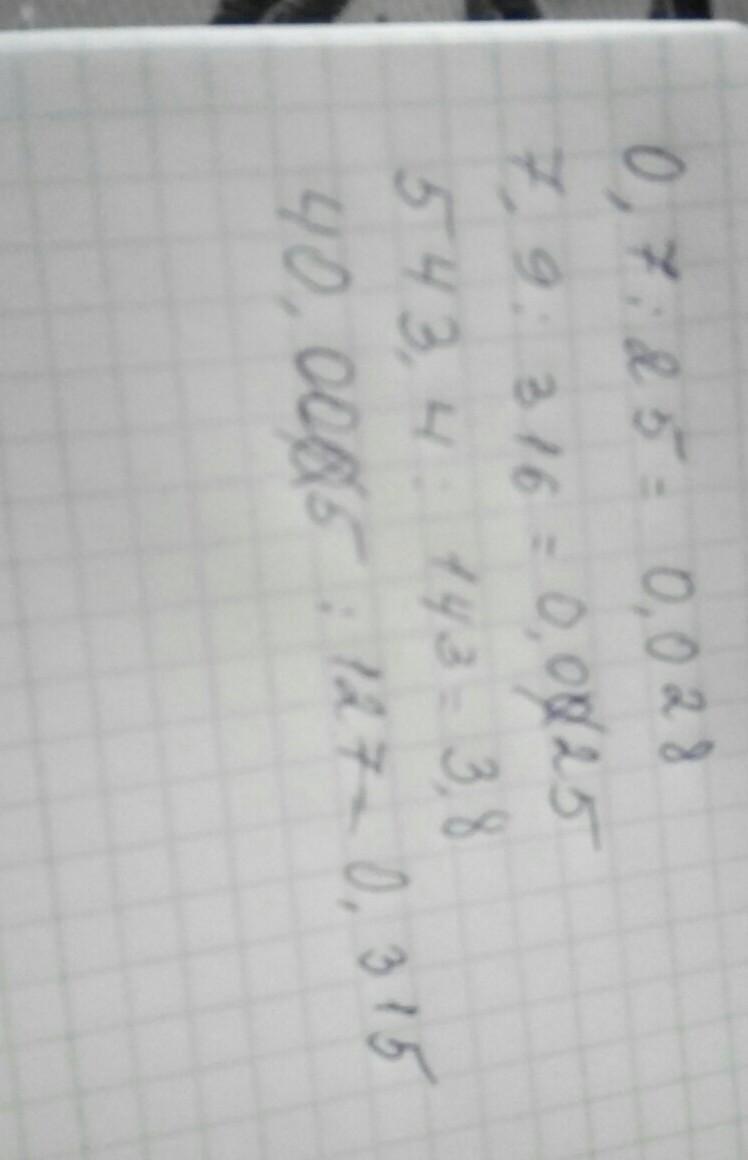 0,7:25=0,028
7,9:316=0,025
543,4:143=3,8
40,005:127=0,315